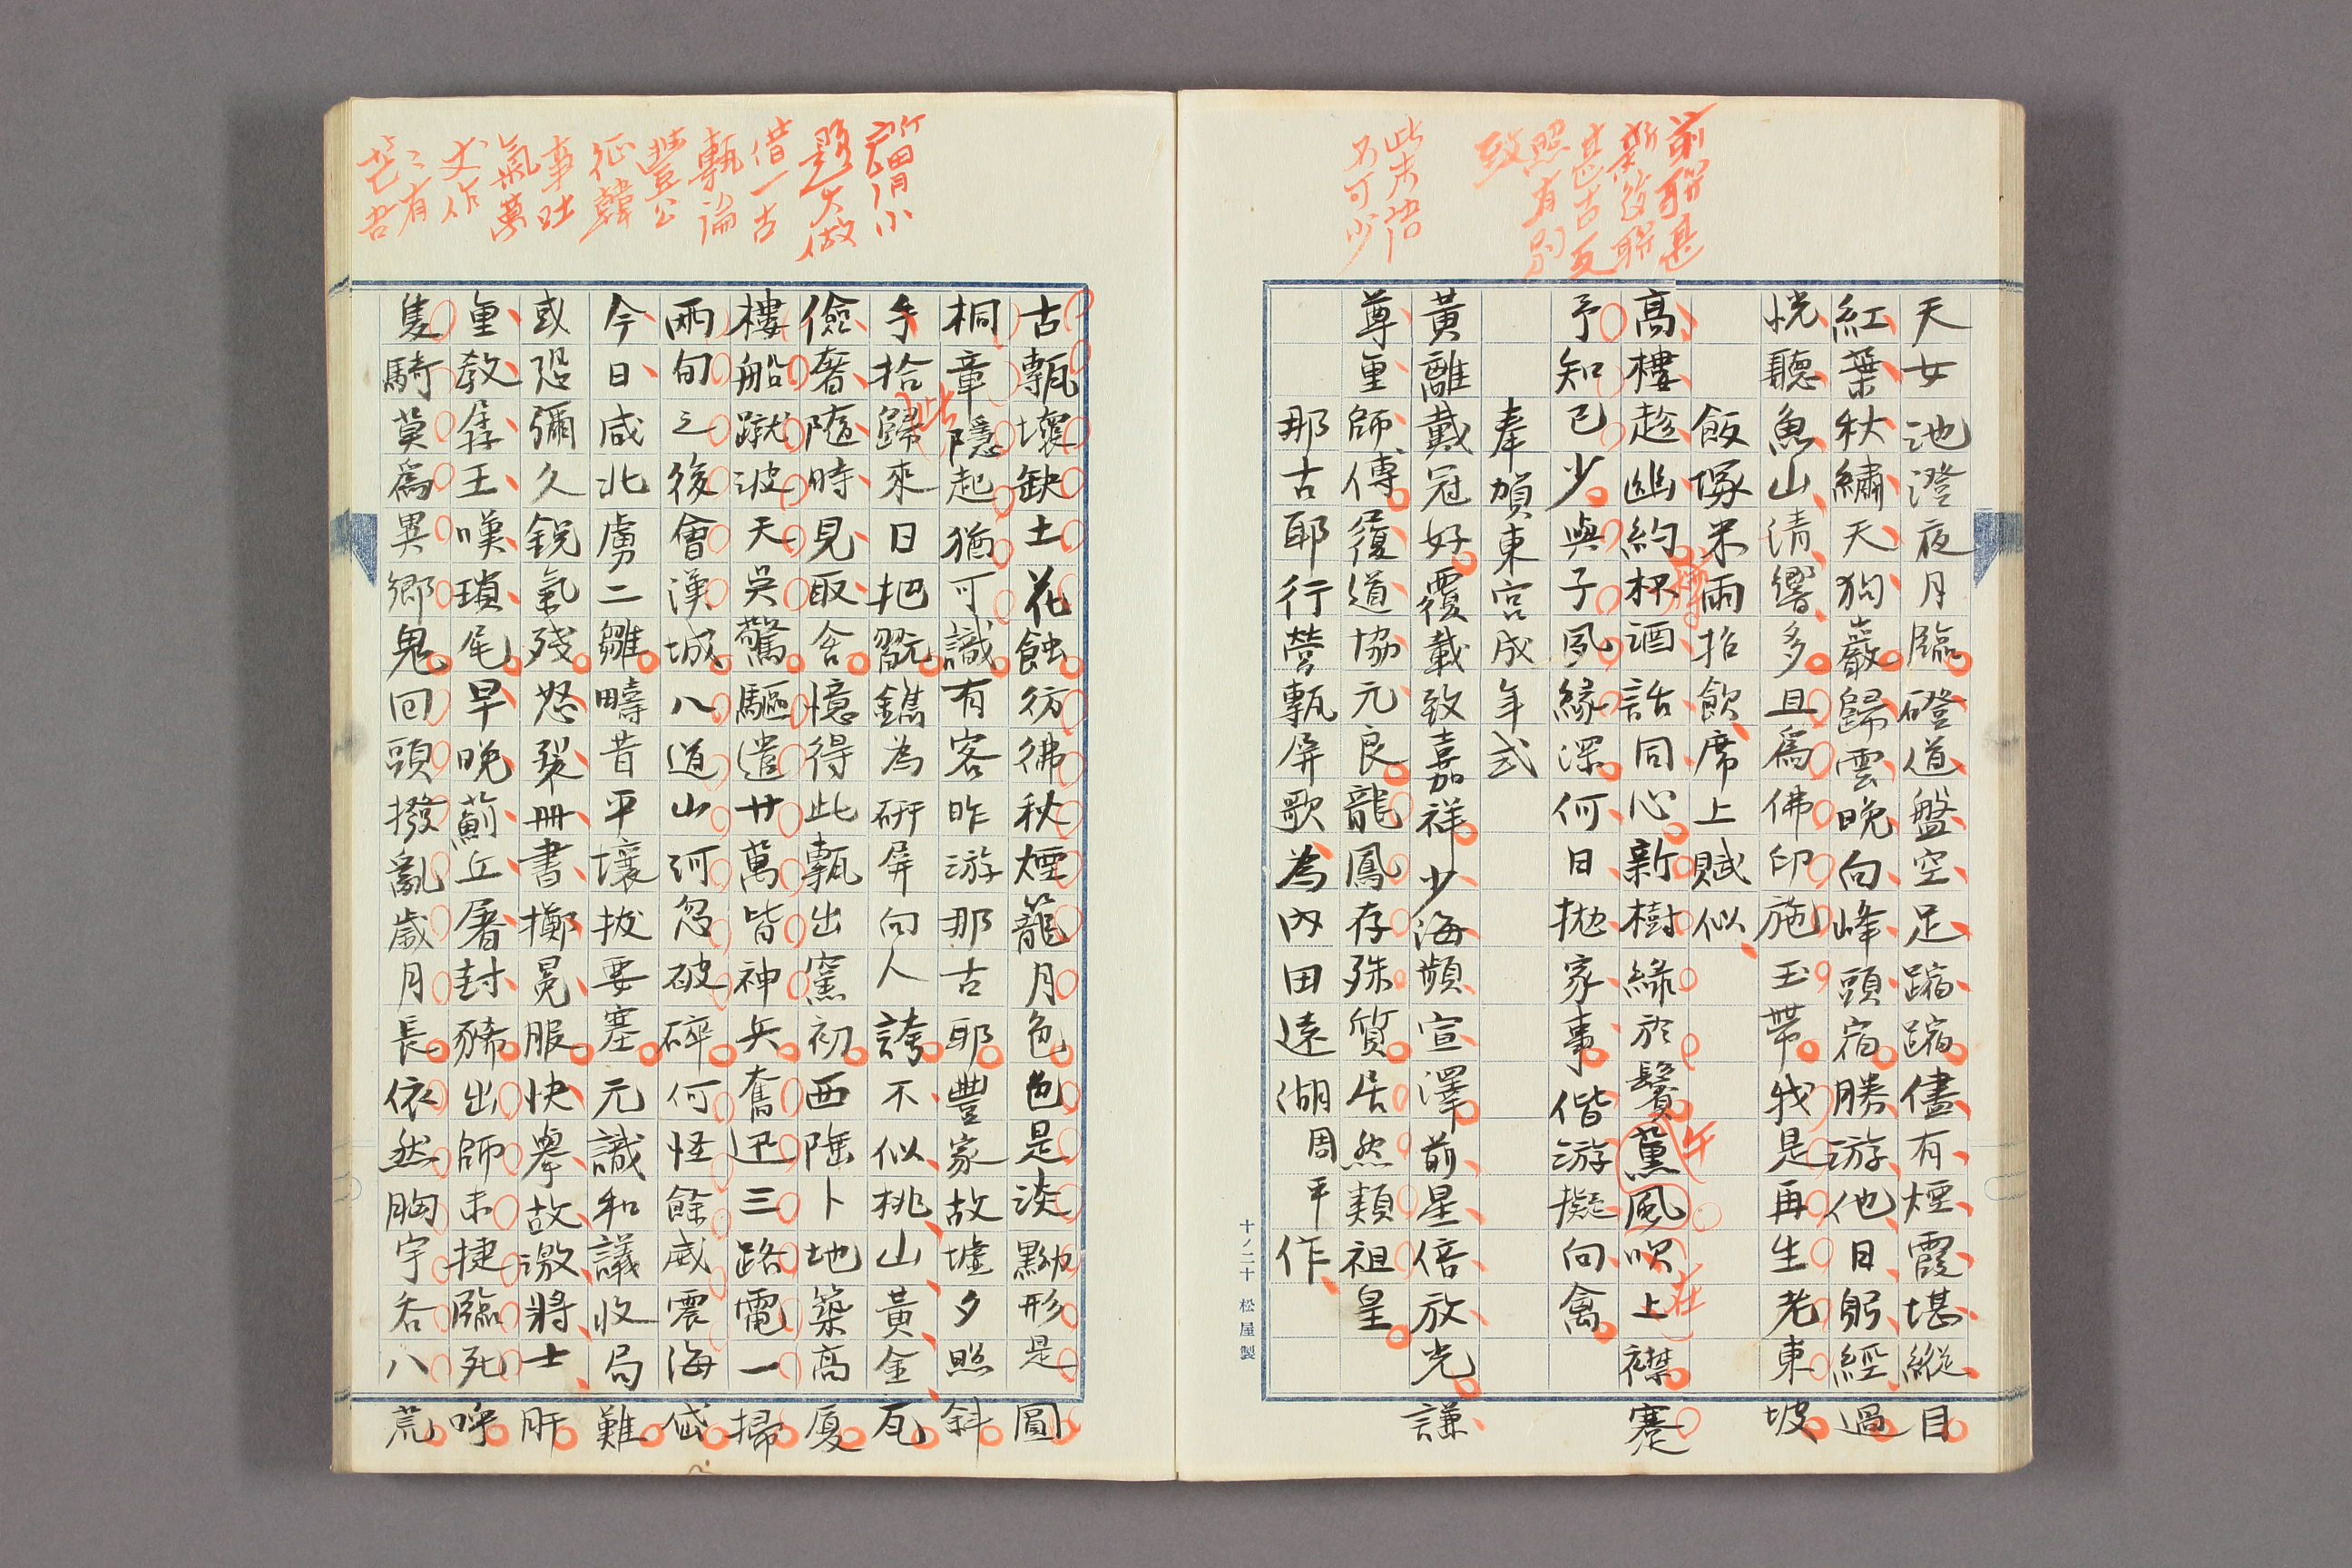 前聯甚
新後聯
甚古互
照有別
致
此末語
不可少
天女池澄夜月臨磴道盤空足蹜蹜儘有煙霞堪縱目
紅葉秋繡天狗巖歸雲晚向峰頭宿勝游他日躬經過
恍聽魚山清響多且爲佛印施玉帶我是再生老東坡
飯塚米雨招飲席上賦似
高樓趁幽約杯酒話同心新樹綠於鬢薰風吹上襟蹇
午
在
予知己少與子夙緣深何日拋家事偕游擬向禽
奉賀東宮成年式
黃離戴冠好覆載致嘉祥少海頻宣澤前星倍放光謙
尊重師傅履道協元良龍鳳存殊質居然類祖皇
那古耶行營甎屏歌為內田遠湖周平作
十ノ二十 松屋製
所謂小
題大做
借一古
甎論
豐公
征韓
事吐
氣萬
丈作
作有
芒
古甎壞缺土花蝕彷彿秋煙籠月色色是淡黝形是圓
桐章隱起猶可識有客昨游那古耶豐家故墟夕照斜
手拾歸來日把翫鐫為硏屏向人誇不似桃山黃金瓦
此
儉奢隨時見取舍憶得此甎出窯初西陲卜地築高廈
樓船蹴波天吳驚驅遣廿萬皆神兵奮迅三路電一掃
兩旬之後會漢城八道山河忽破碎何怪餘威震海岱
今日咸北虜二雛疇昔平壤拔要塞元識和議收局難
或恐彌久銳氣殘怒裂冊書擲冕服快舉故激將士肝
重教孱王嘆瑣尾早晚薊丘屠封豨出師未捷臨死呼
隻騎莫爲異鄉鬼回頭撥亂歲月長依然胸宇吞八荒